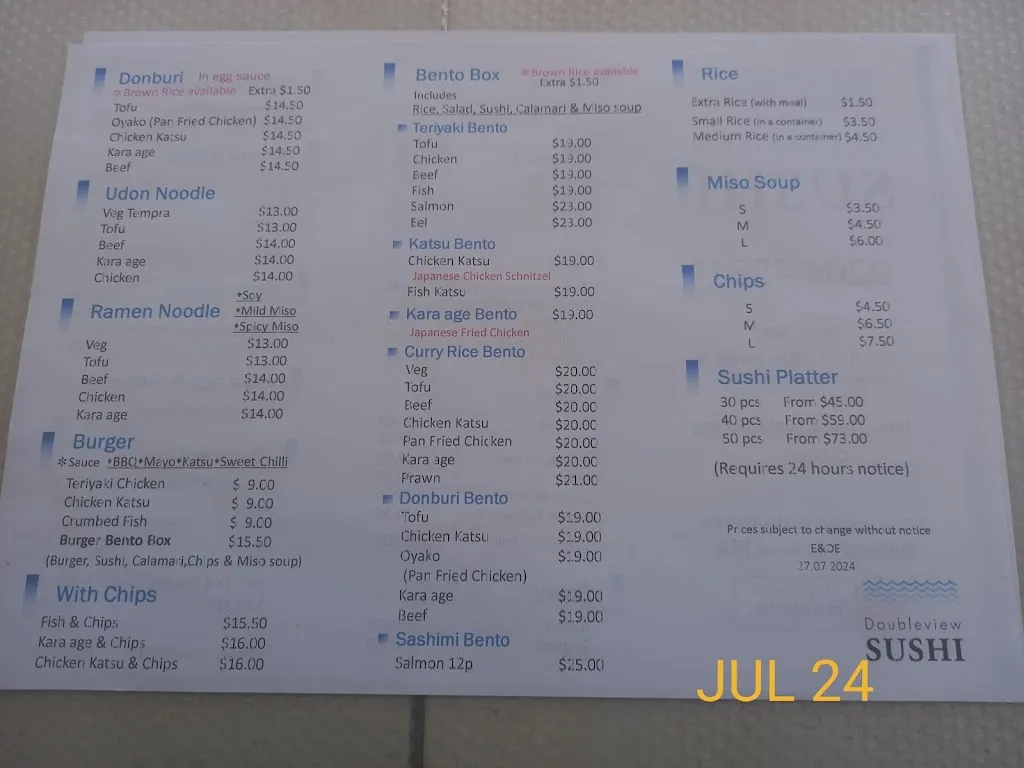 Donburi In egg sauce
*Brown Rice available Extra $1.50
Tofu $14.50
Oyako (Pan Fried Chicken) $14.50
Chicken Katsu $14.50
Kara age $14.50
Beef $14.50
Udon Noodle
Veg Tempra $13.00
Tofu $13.00
Beef $14.00
Kara age $14.00
Chicken $14.00
Ramen Noodle
•Soy
•Mild Miso
•Spicy Miso
Veg $13.00
Tofu $13.00
Beef $14.00
Chicken $14.00
Kara age $14.00
Burger
*Sauce •BBQ•Mayo•Katsu•Sweet Chilli
Teriyaki Chicken $ 9.00
Chicken Katsu $ 9.00
Crumbed Fish $ 9.00
Burger Bento Box $15.50
(Burger, Sushi, Calamari,Chips & Miso soup)
With Chips
Fish & Chips $15.50
Kara age & Chips $16.00
Chicken Katsu & Chips $16.00
Bento Box *Brown Rice available
Extra $1.50
Includes
Rice, Salad, Sushi, Calamari & Miso soup
Teriyaki Bento
Tofu $19.00
Chicken $19.00
Beef $19.00
Fish $19.00
Salmon $23.00
Eel $23.00
Katsu Bento
Chicken Katsu $19.00
Japanese Chicken Schnitzel
Fish Katsu $19.00
Kara age Bento $19.00
Japanese Fried Chicken
Curry Rice Bento
Veg $20.00
Tofu $20.00
Beef $20.00
Chicken Katsu $20.00
Pan Fried Chicken $20.00
Kara age $20.00
Prawn $21.00
Donburi Bento
Tofu $19.00
Chicken Katsu $19.00
Oyako $19.00
(Pan Fried Chicken)
Kara age $19.00
Beef $19.00
Sashimi Bento
Salmon 12p $25.00
Rice
Extra Rice (with meal) $1.50
Small Rice (in a container) $3.50
Medium Rice (in a container) $4.50
Miso Soup
S $3.50
M $4.50
L $6.00
Chips
S $4.50
M $6.50
L $7.50
Sushi Platter
30 pcs From $45.00
40 pcs From $59.00
50 pcs From $73.00
(Requires 24 hours notice)
Prices subject to change without notice
E&OE
27.07 2024
Doubleview
SUSHI
JUL 24